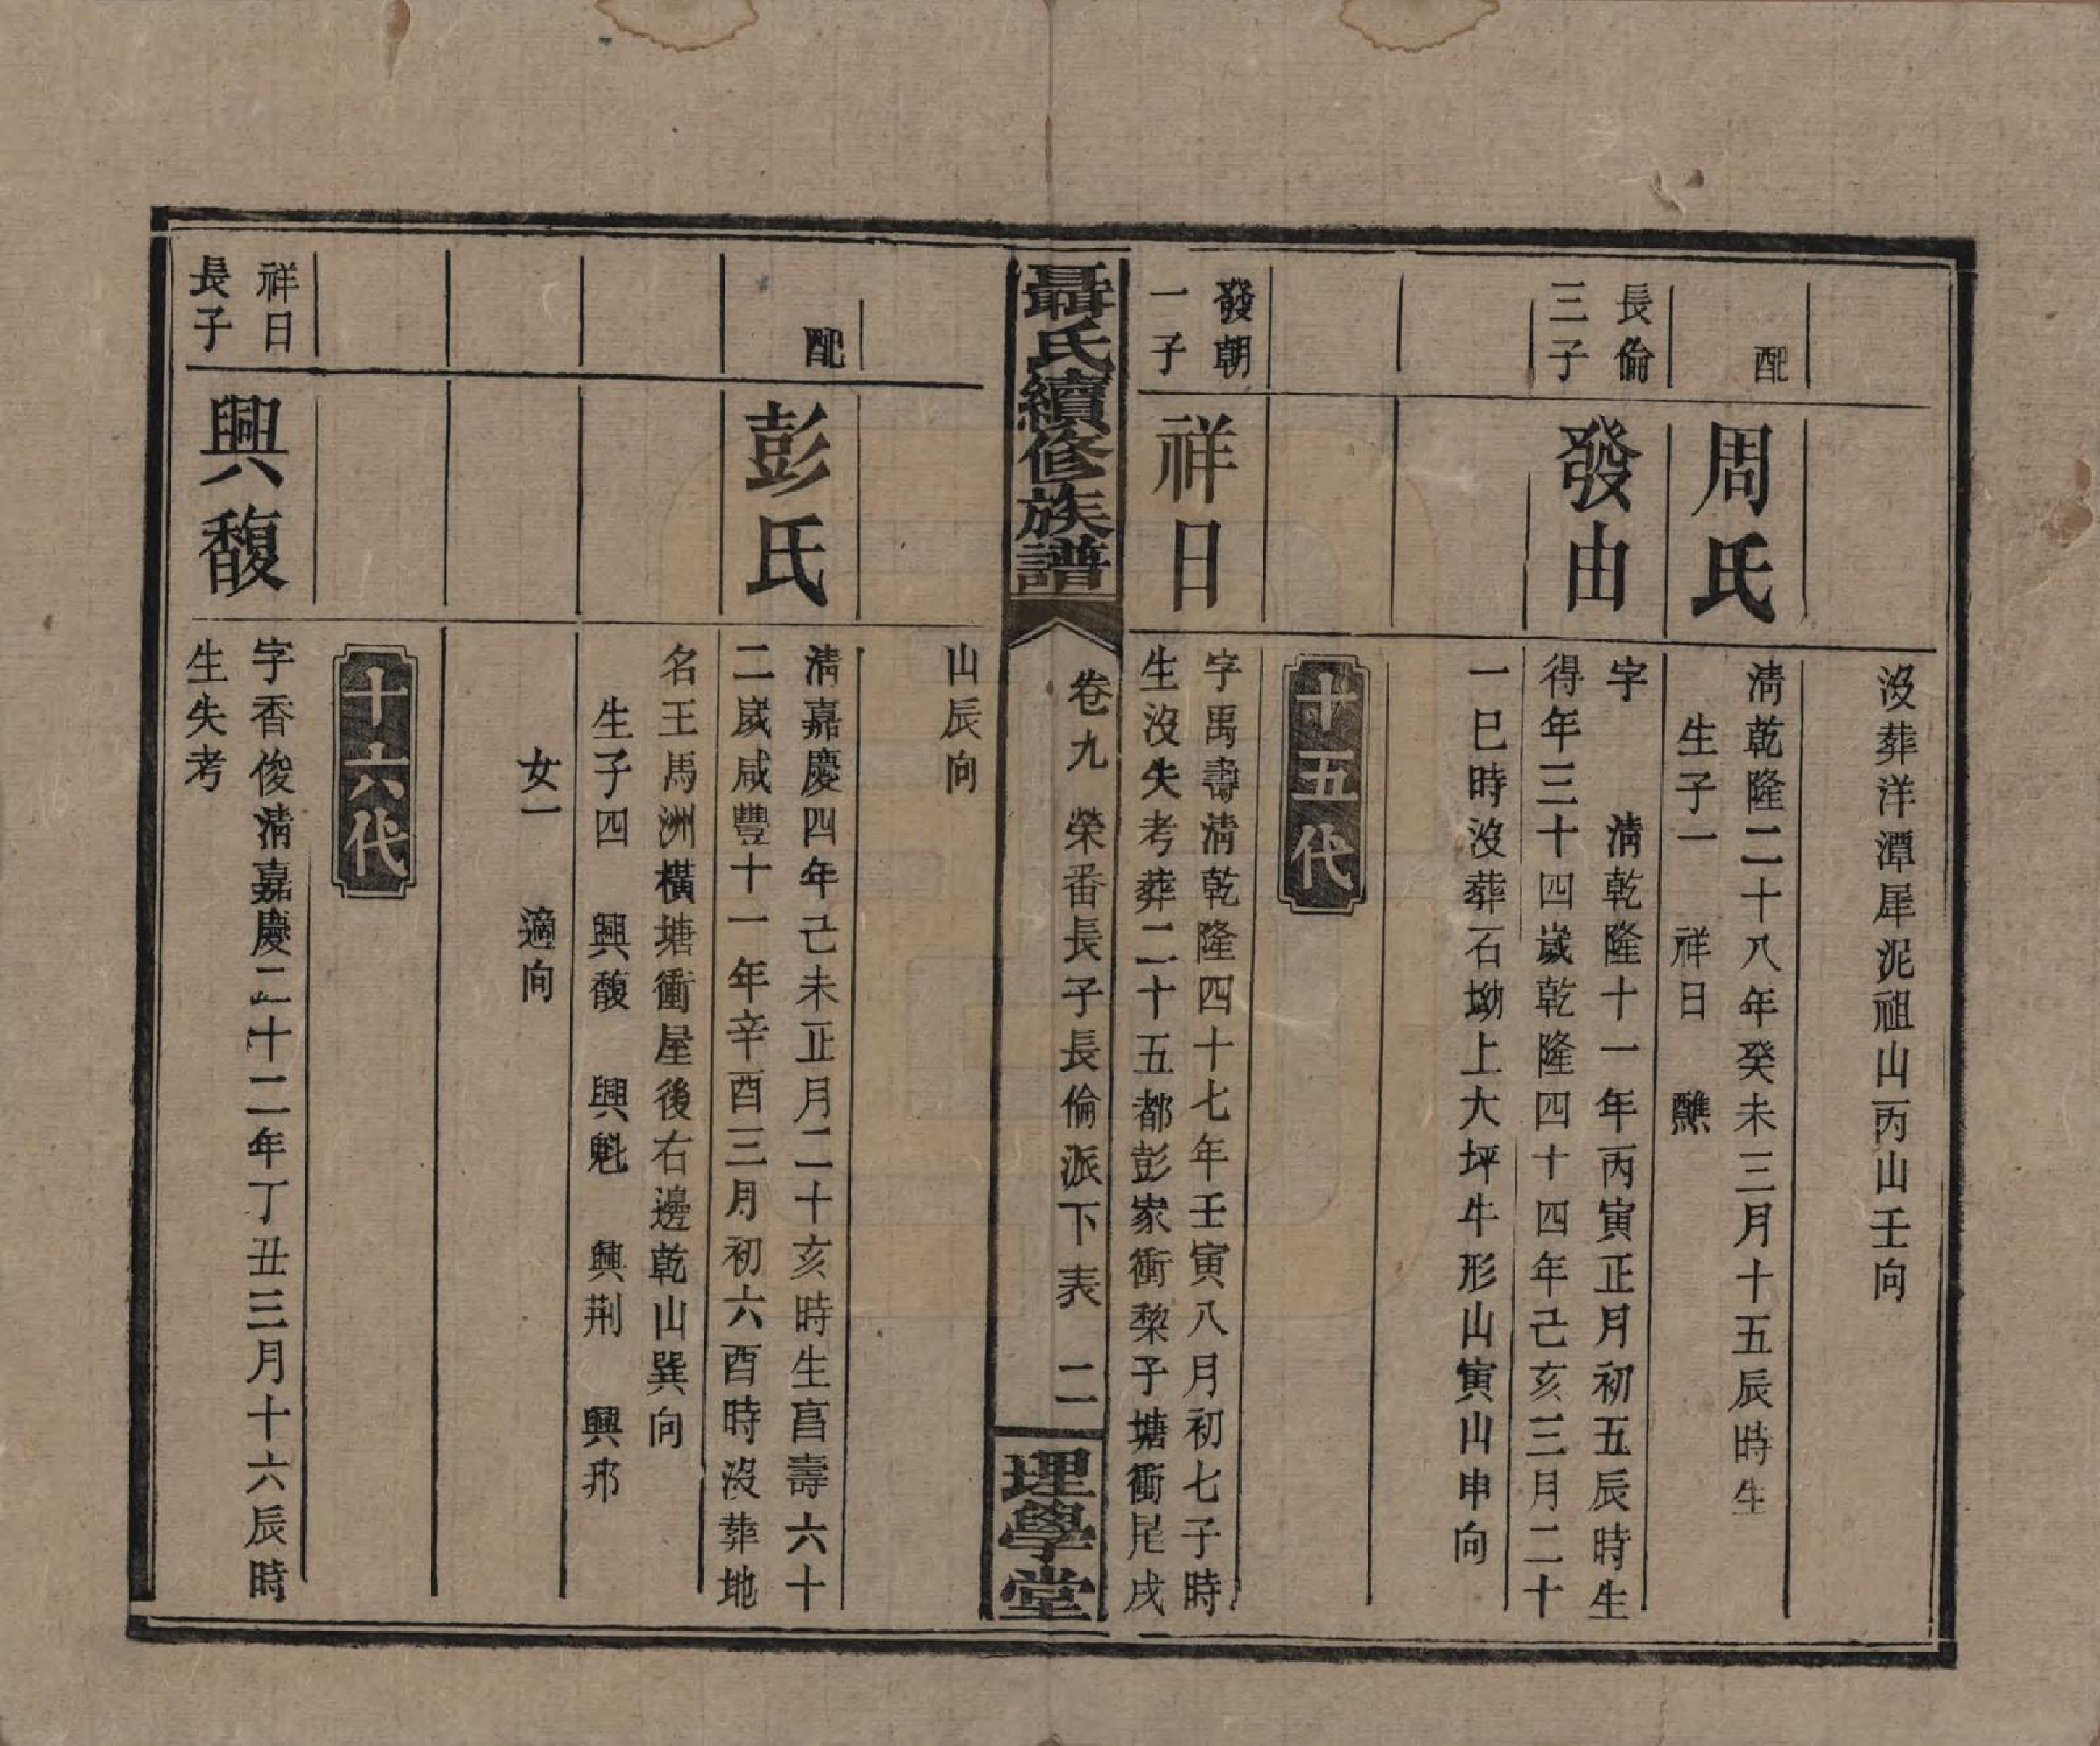 沒葬洋潭犀泥祖山丙山壬向
配
周氏
清乾隆二十八年癸未三月十五辰時生
生子一　祥日　醮
長倫
三子
發由
字　　清乾隆十一年丙寅正月初五辰時生
得年三十四歲乾隆四十四年己亥三月二十
一巳時沒葬石坳上大坪牛形山寅山申向
十五代
發朝
一子
祥日
字禹壽清乾隆四十七年壬寅八月初七子時
生沒失考葬二十五都彭家衝棃子塘衝尾戌
聶氏續修族譜
卷九　榮番長子長倫派下表　二
理學堂
山辰向
配
彭氏
清嘉慶四年己未正月二十亥時生享壽六十
二歲咸豐十一年辛酉三月初六酉時沒葬地
名王馬洲橫塘衝屋後右邊乾山巽向
生子四　興馥　興魁　興荆　興邦
女一　適向
十六代
祥日
長子
興馥
字香俊清嘉慶二十二年丁丑三月十六辰時
生失考